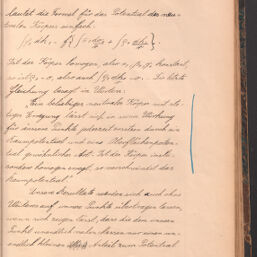 lautet die Formel für das Potential des neu-
tralen Körpers einfach:
Ist der Körper homogen, also
so ist also auch Die letzte
Gleichung besagt in Worten:
„Ein beliebiger neutraler Körper mit
Erregung lässt sich in seiner Wirkung
für äussere Punkte jederzeit ersetzen durch ein
Raumpotential und eine Oberflächenpoten-
tial gewöhnlicher Art. Ist der Körper insbe-
sondere homogen erregt, so verschwindet das
Raumpotential."
Unsere Resultate werden sich auch ohne
Weiteres auf innere Punkte übertragen lassen,
wenn sich zeigen lässt, dass die dem innern
Punkt unendlich nahen Massen nur einen un-
endlich kleinen Anteil zum Potential